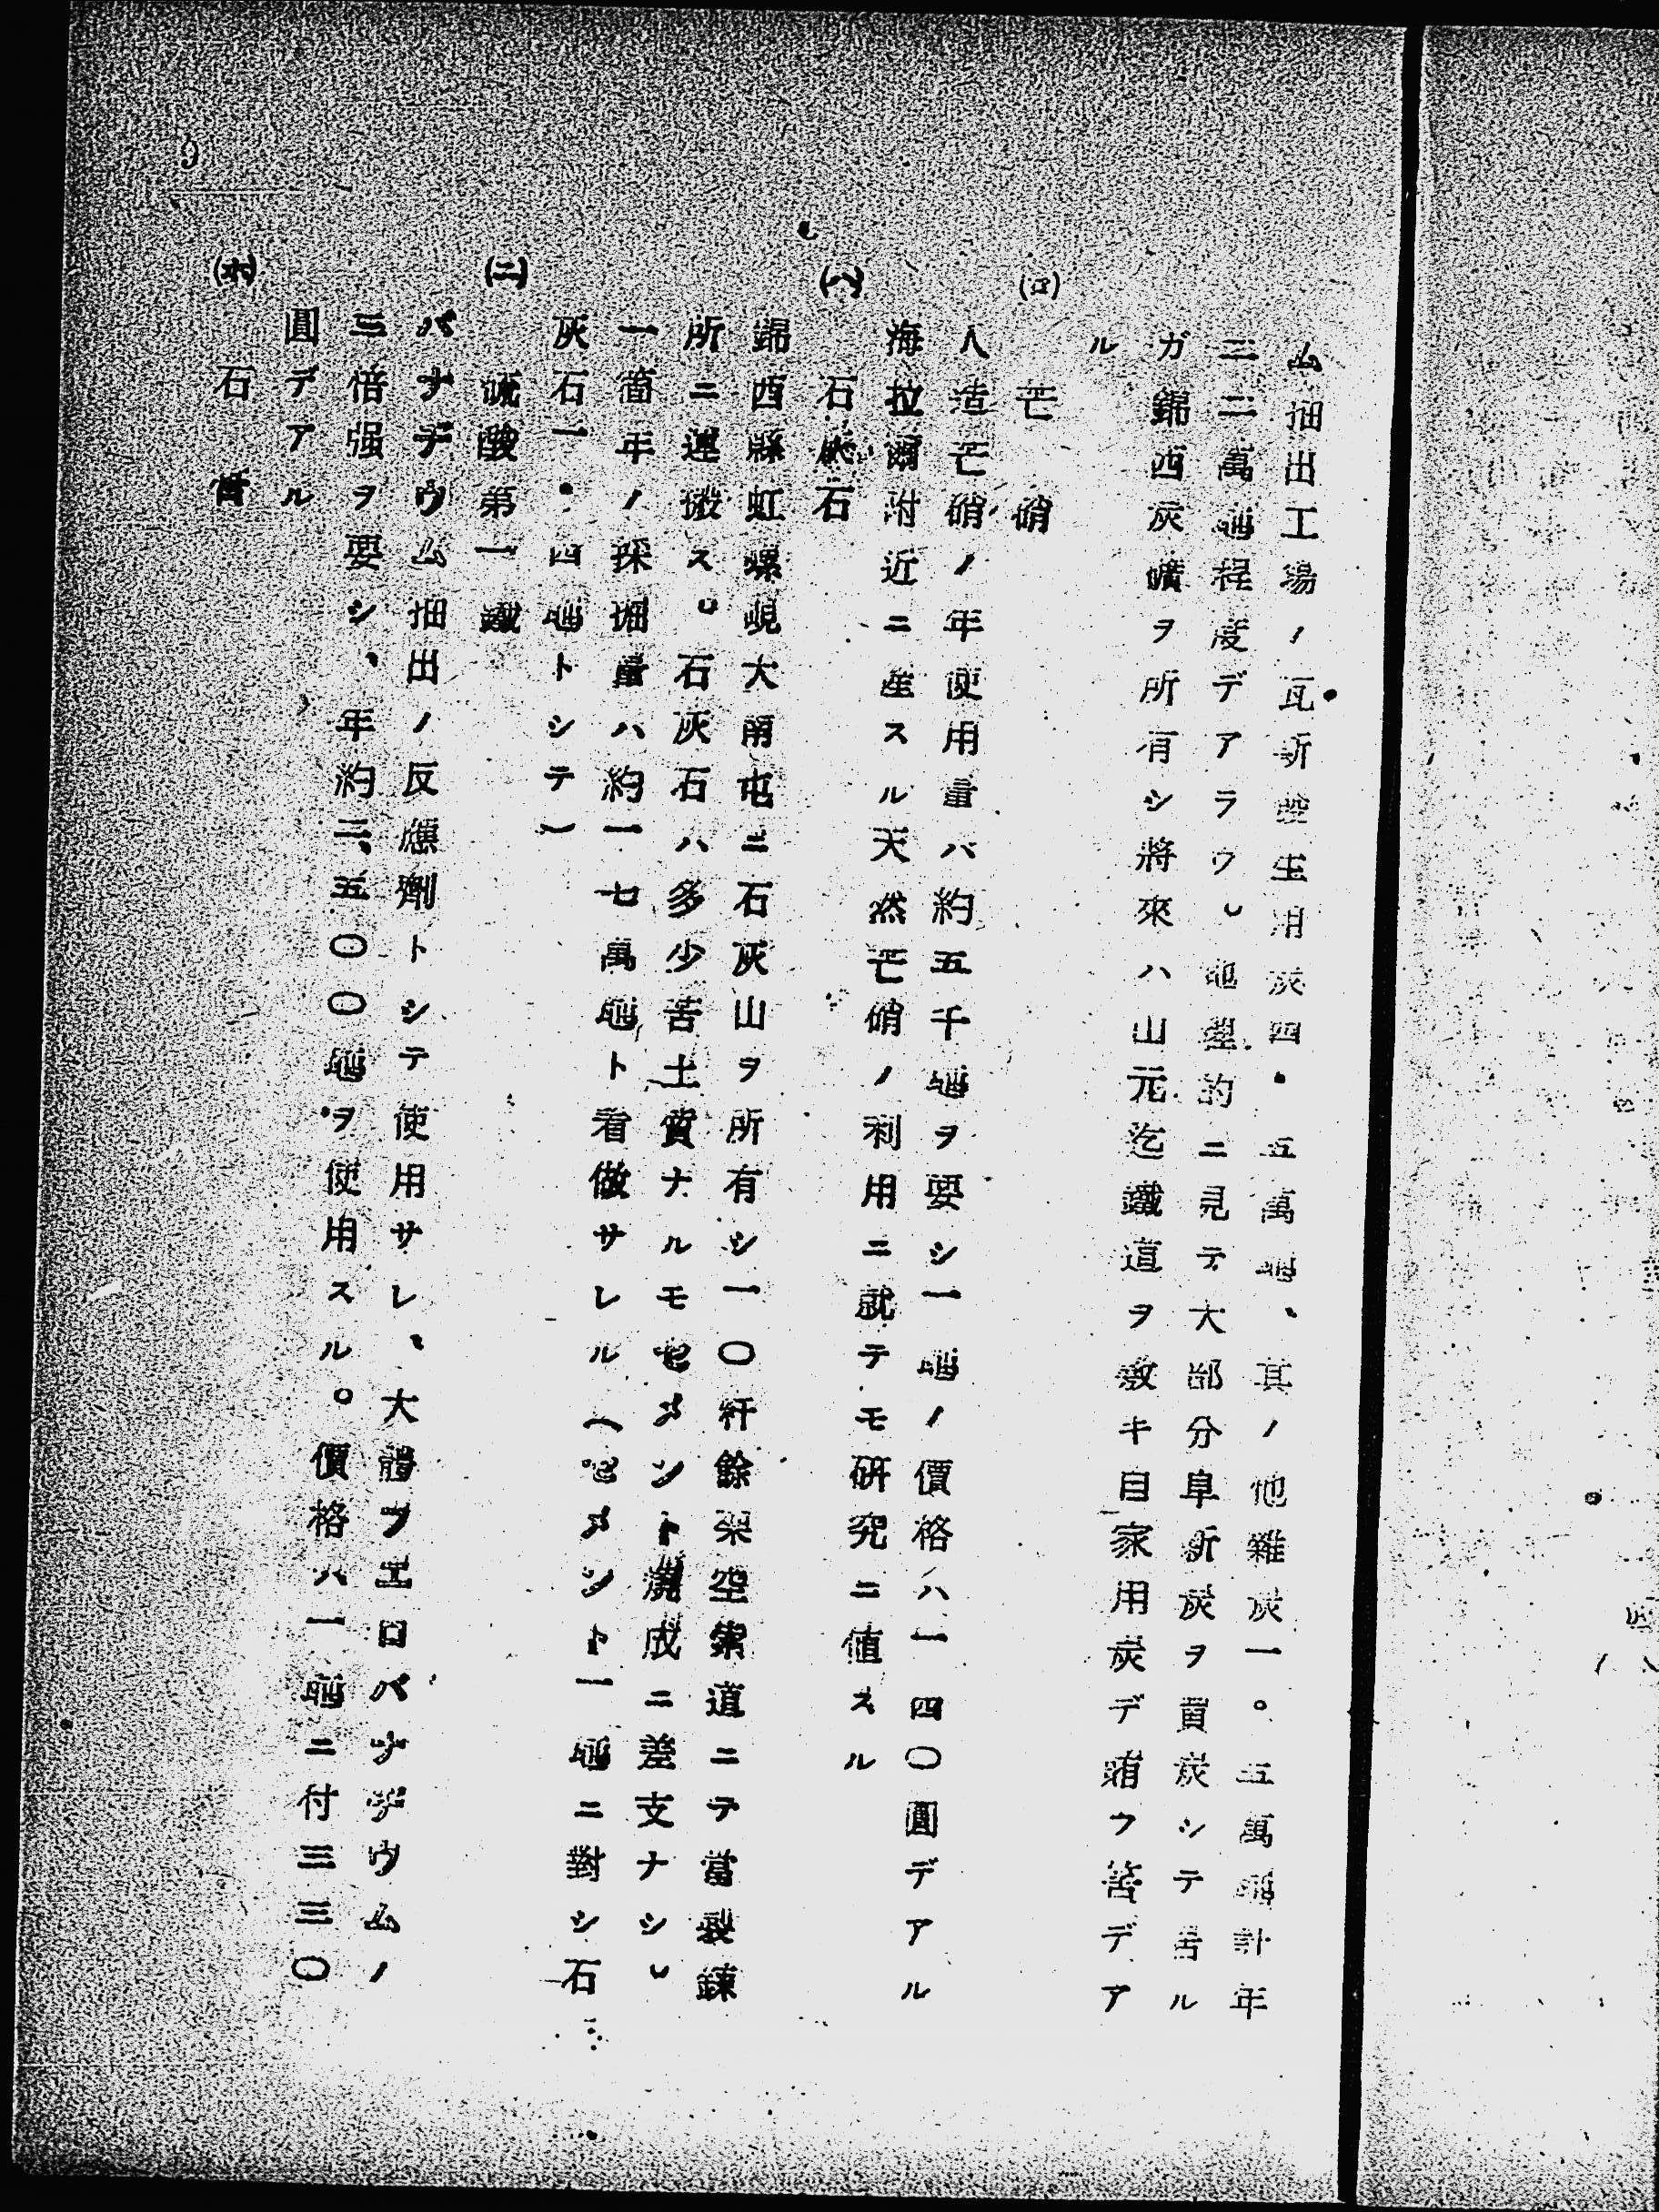 ム抽出工場ノ瓦斯發生用炭四・五萬瓲、其ノ他雜炭一。五萬瓲計年
三二萬瓲程度デアラウ。地理的ニ見テ大部分阜新炭ヲ買炭シテ居ル
ガ錦西炭礦ヲ所有シ將來ハ山元迄鐵道ヲ敷キ自家用炭デ賄フ筈デア
ル
(ロ) 芒硝
人造芒硝ノ年使用量バ約五千瓲ヲ要シ一瓲ノ價格ハ一四〇圓デアル
海拉爾附近ニ産スル天然芒硝ノ利用ニ就テモ研究ニ値スル
(ハ) 石灰石
錦西縣虹螺峴大甬屯ニ石灰山ヲ所有シ一〇粁餘架空索道ニテ當製鍊
所ニ運搬ス。石灰石ハ多少苦土質ナルモセメント燒成ニ差支ナシ。
一箇年ノ採掘量ハ約一七萬瓲ト看做サレル(セメント一瓲ニ對シ石
灰石一・四瓲トシテ)
(ニ) 硫酸第一鐵
バナヂウム抽出ノ反應劑トシテ使用サレ、大體フエロバナヂウムノ
三倍强ヲ要シ、年約二、五〇〇瓲ヲ使用スル。價格ハ一瓲ニ付三三〇
圓デアル
(ホ) 石膏
9